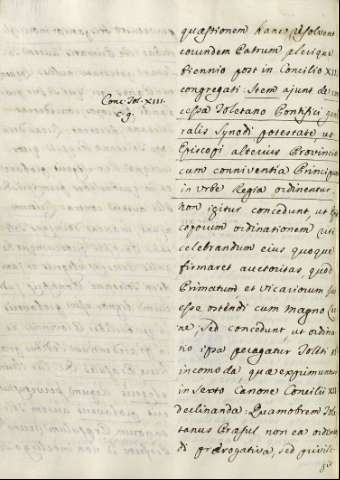 quæstionem hanc resolvent
eorundem Patrum plerique
Biennio post in Concilio XIII
congregati. Item ajunt de con
cessa Toletano Pontifici gene
ralis Synodi potestate ut
Episcopi alterius Provinciæ
cum conniventia Principum
in Urbe Regia ordinentur.
non igitur concedunt, ut Epis
coporum ordinationem
celebrandum eius quoque
firmaret auctoritas, quod
Primatum et Vicariorum
esse ostendi cum magno
ne, sed concedunt, ut ordina
tio ipsa peragatur Toleti
incomoda quæ exprimuntur
in sexto Canone Concilii XII
declinanda. Quamobrem Tole
tanus Præsul non ea ordinan
di prærogativa, sed privile
gio
Conc. Tol. XIII.
c. 9.